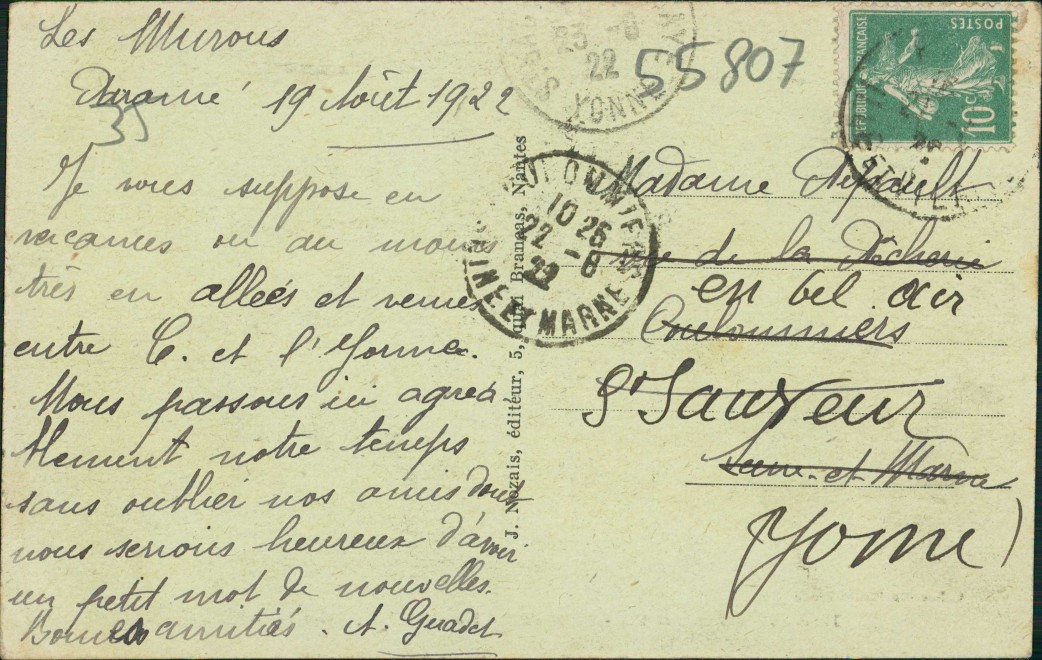 Les Murous
Paramé 19 Août 1922
35
Je vous suppose en
vacances ou au moins
très en allées et venues
entre C. et l'Yonne.
Nous passons ici agréa
blement notre temps
sans oublier nos amis dont
nous serions heureux d'avoir
un petit mot de nouvelles.
Bonnes amitiés. A. Guadet
J. Nozais, éditeur, 5, quai Brancas, Nantes
55807
YONNE
22
COULOMMIERS
10 26
22 -8
22
SEINE ET MARNE
POSTES
REPUBLIQUE FRANÇAISE
10c
Madame
rue de la Pêcherie
en bel air
Coulommiers
St Sauveur
Seine-et-Marne
Yonne)